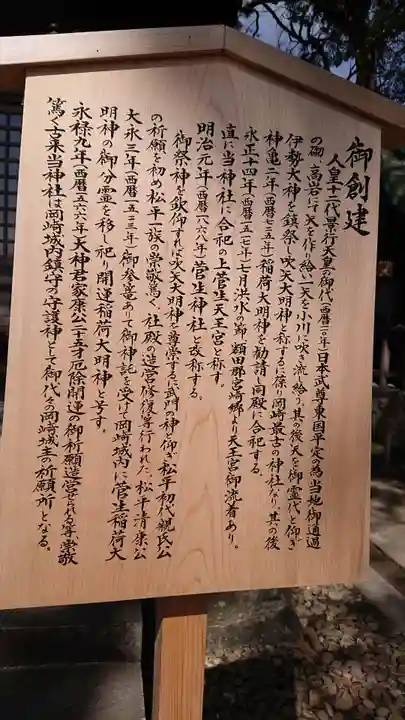 御創建
人皇十二代景行天皇の御代(西暦一一〇年)日本武尊東国平定の為当地御通過
の砌、高岩にて矢を作り給い一矢を小川に吹き流し給う。其の後矢を御霊代と仰ぎ
伊勢大神を鎮祭し吹矢大明神と称するに依り岡崎最古の神社なり。其の後
神亀二年(西暦七二五年)稲荷大明神を勧請し同殿に合祀する。
永正十四年(西暦一五一七年)七月洪水の節、額田郡宮崎郷より天王宮御流着あり。
直に当神社に合祀の上菅生天王宮と称す。
明治元年(西暦一八六八年)菅生神社と改称する。
御祭神を欽仰すれば吹矢大明神を尊崇するに武門の神と仰ぎ松平初代親氏公
の祈願を初め松平一族の崇敬篤く社殿の造営修復等行われた。松平清康公
大永三年(西暦一五二三年)御参篭ありて御神託を受けて岡崎城内に菅生稲荷大
明神の御分霊を移し祀り開運稲荷大明神と号す。
永禄九年(西暦一五六六年)大神君家康公二十五才厄除開運の御祈願造営される等崇敬
篤く古来当神社は岡崎城内鎮守の守護神として御代々の岡崎城主の祈願所となる。